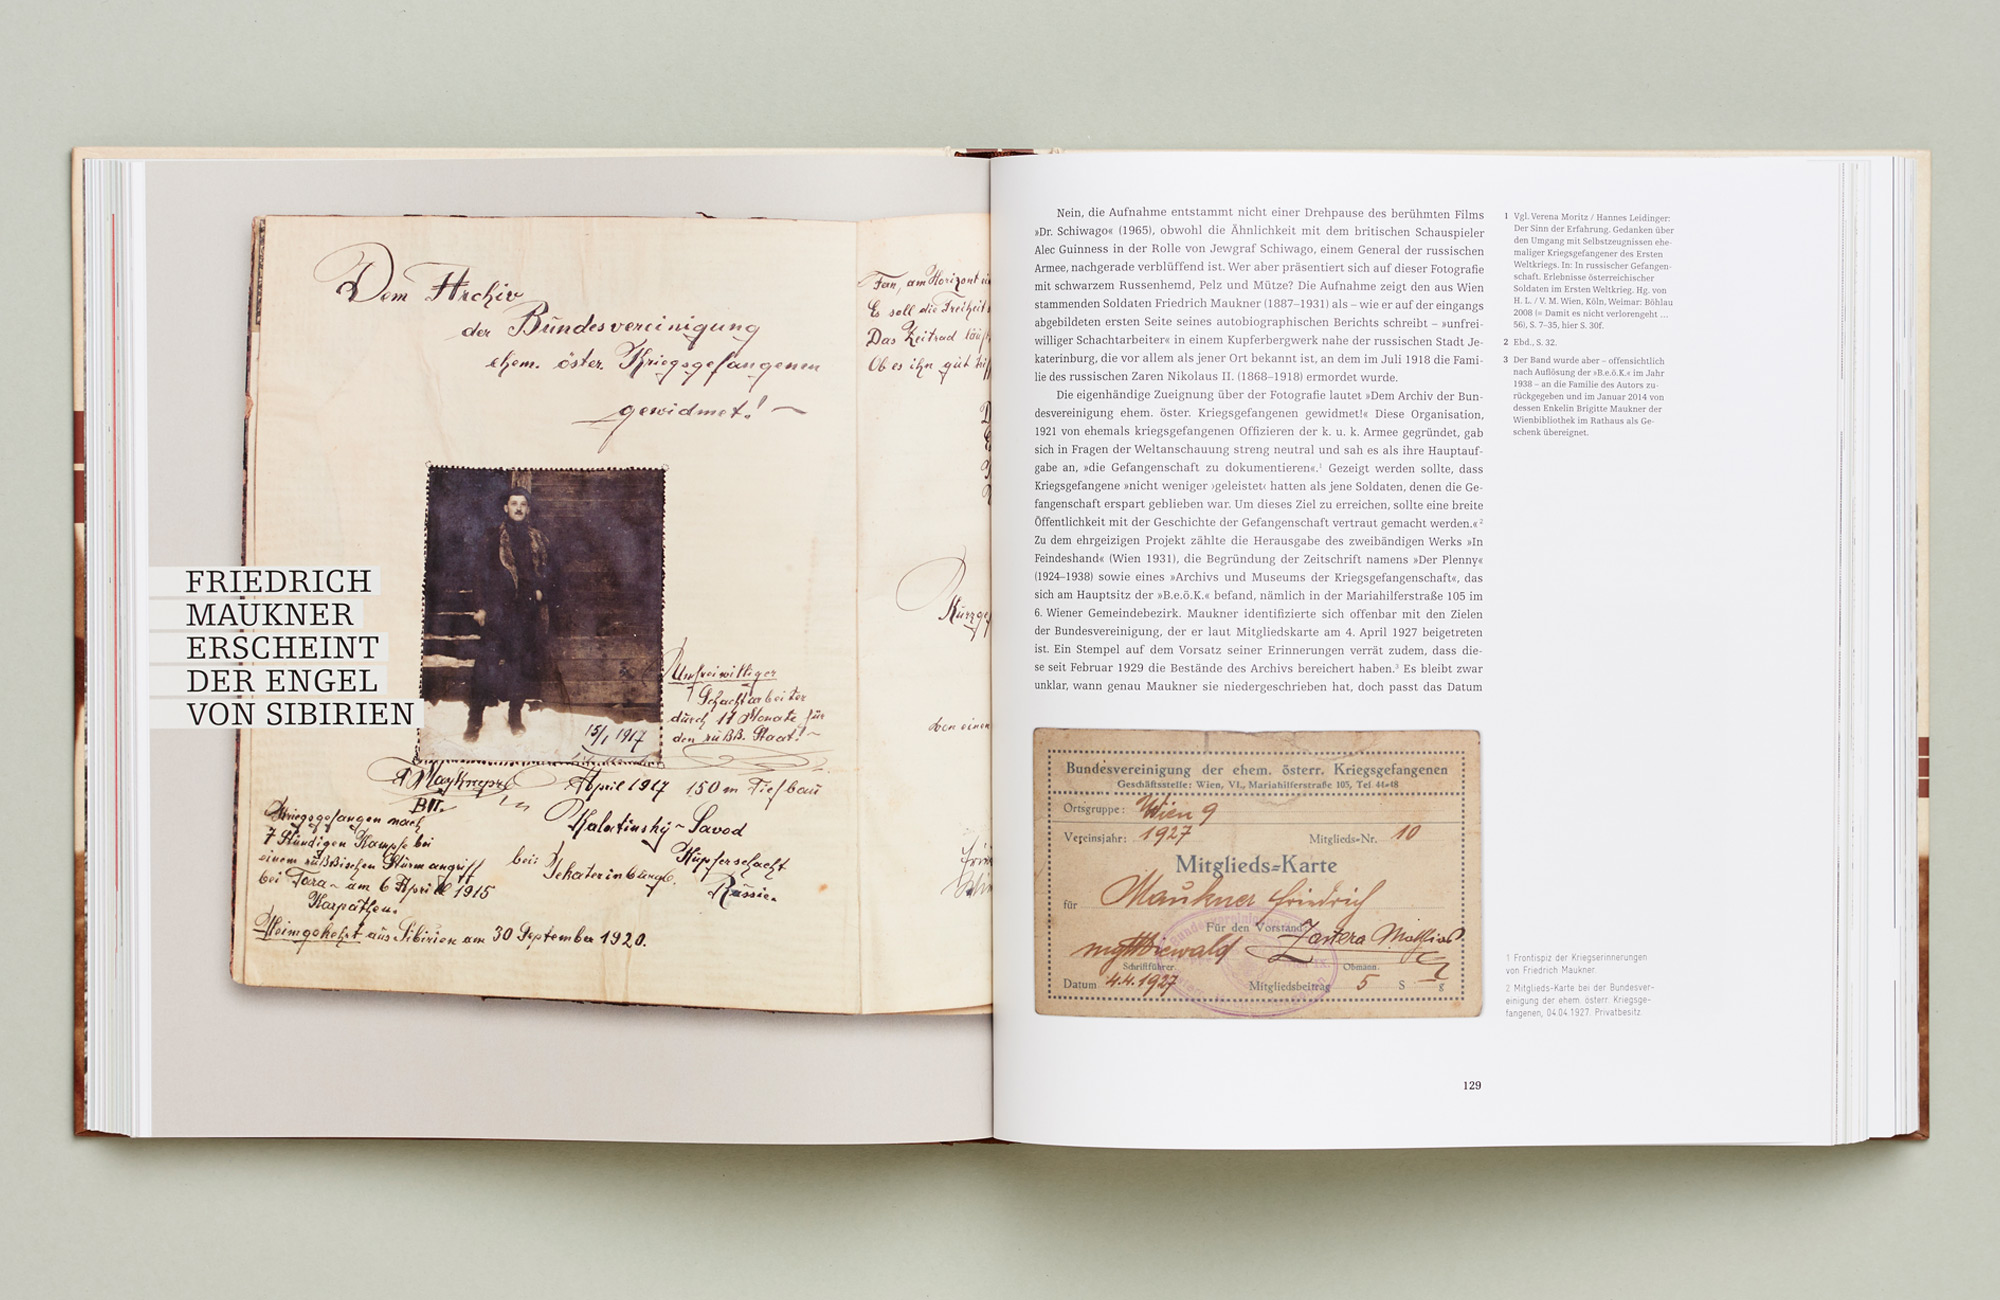 Dem Archiv
der Bundesvereinigung
ehem. öster. Kriegsgefangenen
gewidmet!
15/1 1917
Unfreiwilliger
Schachtarbeiter
durch 11 Monate für
den rußß. Staat!
April 1917 150 m Tiefbau
Kriegsgefangen nach
7 Stündigen Kampfe bei
einem rußßischen Sturmangriff
bei Tara am 6 April 1915
Karpathen.
bei: Jekaterinburg.
Kupferschacht
Russien.
Heimgekehrt aus Sibirien am 30 September 1920.
Fern, am Horizont
Es soll die Freiheit
Das Zeitrad
Ob es ihn gut
den einen
FRIEDRICH
MAUKNER
ERSCHEINT
DER ENGEL
VON SIBIRIEN
Nein, die Aufnahme entstammt nicht einer Drehpause des berühmten Films
»Dr. Schiwago« (1965), obwohl die Ähnlichkeit mit dem britischen Schauspieler
Alec Guinness in der Rolle von Jewgraf Schiwago, einem General der russischen
Armee, nachgerade verblüffend ist. Wer aber präsentiert sich auf dieser Fotografie
mit schwarzem Russenhemd, Pelz und Mütze? Die Aufnahme zeigt den aus Wien
stammenden Soldaten Friedrich Maukner (1887–1931) als – wie er auf der eingangs
abgebildeten ersten Seite seines autobiographischen Berichts schreibt – »unfrei-
williger Schachtarbeiter« in einem Kupferbergwerk nahe der russischen Stadt Je-
katerinburg, die vor allem als jener Ort bekannt ist, an dem im Juli 1918 die Fami-
lie des russischen Zaren Nikolaus II. (1868–1918) ermordet wurde.
Die eigenhändige Zueignung über der Fotografie lautet »Dem Archiv der Bun-
desvereinigung ehem. öster. Kriegsgefangenen gewidmet!« Diese Organisation,
1921 von ehemals kriegsgefangenen Offizieren der k. u. k. Armee gegründet, gab
sich in Fragen der Weltanschauung streng neutral und sah es als ihre Hauptauf-
gabe an, »die Gefangenschaft zu dokumentieren«.1 Gezeigt werden sollte, dass
Kriegsgefangene »nicht weniger ›geleistet‹ hatten als jene Soldaten, denen die Ge-
fangenschaft erspart geblieben war. Um dieses Ziel zu erreichen, sollte eine breite
Öffentlichkeit mit der Geschichte der Gefangenschaft vertraut gemacht werden.«2
Zu dem ehrgeizigen Projekt zählte die Herausgabe des zweibändigen Werks »In
Feindeshand« (Wien 1931), die Begründung der Zeitschrift namens »Der Plenny«
(1924–1938) sowie eines »Archivs und Museums der Kriegsgefangenschaft«, das
sich am Hauptsitz der »B.e.ö.K.« befand, nämlich in der Mariahilferstraße 105 im
6. Wiener Gemeindebezirk. Maukner identifizierte sich offenbar mit den Zielen
der Bundesvereinigung, der er laut Mitgliedskarte am 4. April 1927 beigetreten
ist. Ein Stempel auf dem Vorsatz seiner Erinnerungen verrät zudem, dass die-
se seit Februar 1929 die Bestände des Archivs bereichert haben.3 Es bleibt zwar
unklar, wann genau Maukner sie niedergeschrieben hat, doch passt das Datum
1 Vgl. Verena Moritz / Hannes Leidinger:
Der Sinn der Erfahrung. Gedanken über
den Umgang mit Selbstzeugnissen ehe-
maliger Kriegsgefangener des Ersten
Weltkriegs. In: In russischer Gefangen-
schaft. Erlebnisse österreichischer
Soldaten im Ersten Weltkrieg. Hg. von
H. L. / V. M. Wien, Köln, Weimar: Böhlau
2008 (= Damit es nicht verlorengeht ...
56), S. 7–35, hier S. 30f.
2 Ebd., S. 32.
3 Der Band wurde aber – offensichtlich
nach Auflösung der »B.e.ö.K.« im Jahr
1938 – an die Familie des Autors zu-
rückgegeben und im Januar 2014 von
dessen Enkelin Brigitte Maukner der
Wienbibliothek im Rathaus als Ge-
schenk übereignet.
Bundesvereinigung der ehem. österr. Kriegsgefangenen
Geschäftsstelle: Wien, VI., Mariahilferstraße 105, Tel 44-48
Ortsgruppe: Wien 9
Vereinsjahr: 1927 Mitglieds-Nr. 10
Mitglieds=Karte
für Maukner Friedrich
Für den Vorstand:
Schriftführer. Obmann.
Datum 4.4.1927 Mitgliedsbeitrag 5 S g
1 Frontispiz der Kriegserinnerungen
von Friedrich Maukner
2 Mitglieds-Karte bei der Bundesver-
einigung der ehem. österr. Kriegsge-
fangenen, 04.04.1927. Privatbesitz.
129